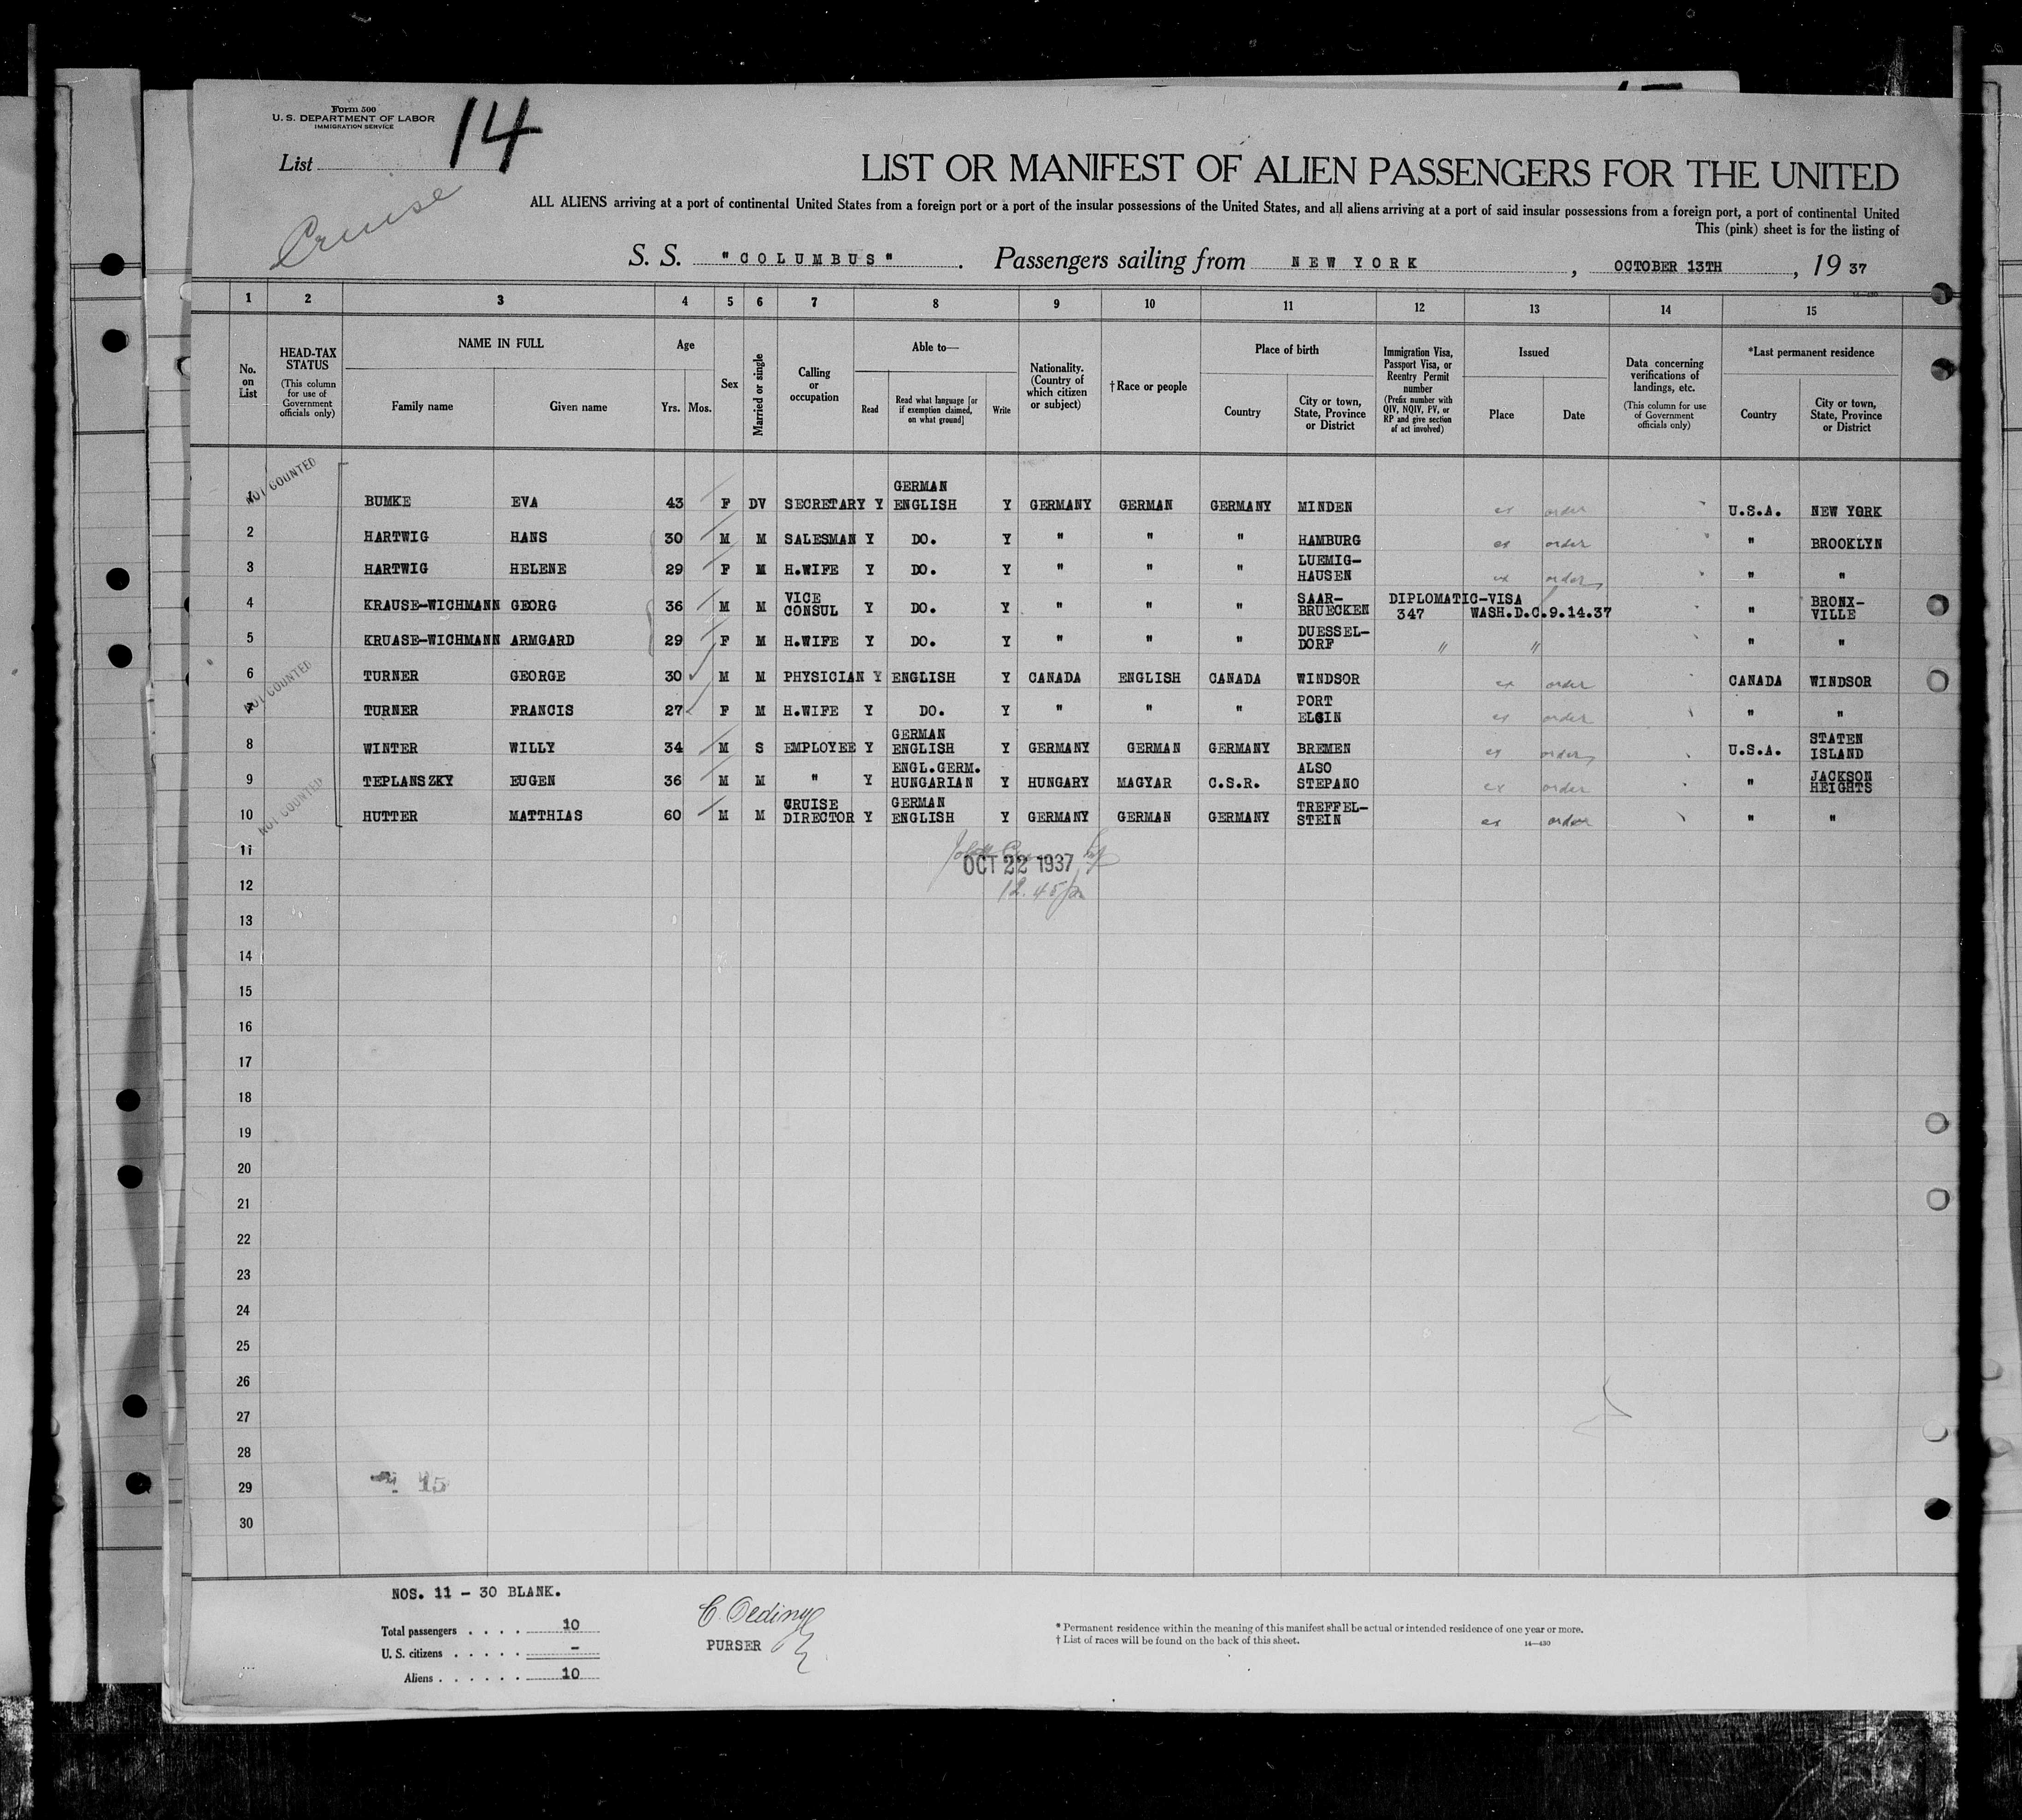 Form 500
U. S. DEPARTMENT OF LABOR
IMMIGRATION SERVICE
List 14
Cruise
LIST OR MANIFEST OF ALIEN PASSENGERS FOR THE UNITED
ALL ALIENS arriving at a port of continental United States from a foreign port or a port of the insular possessions of the United States, and all aliens arriving at a port of said insular possessions from a foreign port, a port of continental United
This (pink) sheet is for the listing of
S. S. "COLUMBUS". Passengers sailing from NEW YORK, OCTOBER 13TH, 19 37
1 2 3 4 5 6 7 8 9 10 11 12 13 14 15
No. on List
HEAD-TAX STATUS (This column for use of Government officials only)
NAME IN FULL
Family name Given name
Age
Yrs. Mos.
Sex
Married or single
Calling or occupation
Able to—
Read
Read what language [or if exemption claimed, on what ground]
Write
Nationality. (Country of which citizen or subject)
†Race or people
Place of birth
Country
City or town, State, Province or District
Immigration Visa, Passport Visa, or Reentry Permit number (Prefix number with QIV, NQIV, PV, or RP and give section of act involved)
Issued
Place Date
Data concerning verifications of landings, etc. (This column for use of Government officials only)
*Last permanent residence
Country
City or town, State, Province or District
NOT COUNTED
1 BUMKE EVA 43 F DV SECRETARY Y GERMAN ENGLISH Y GERMANY GERMAN GERMANY MINDEN ex order U.S.A. NEW YORK
2 HARTWIG HANS 30 M M SALESMAN Y DO. Y " " " HAMBURG ex order " BROOKLYN
3 HARTWIG HELENE 29 F M H.WIFE Y DO. Y " " " LUEMIG-HAUSEN ex order " "
4 KRAUSE-WICHMANN GEORG 36 M M VICE CONSUL Y DO. Y " " " SAAR-BRUECKEN DIPLOMATIC-VISA 347 WASH.D.C.9.14.37 " BRONX-VILLE
5 KRUASE-WICHMANN ARMGARD 29 F M H.WIFE Y DO. Y " " " DUESSEL-DORF " " " "
NOT COUNTED
6 TURNER GEORGE 30 M M PHYSICIAN Y ENGLISH Y CANADA ENGLISH CANADA WINDSOR ex order CANADA WINDSOR
7 TURNER FRANCIS 27 F M H.WIFE Y DO. Y " " " PORT ELGIN ex order " "
8 WINTER WILLY 34 M S EMPLOYEE Y GERMAN ENGLISH Y GERMANY GERMAN GERMANY BREMEN ex order U.S.A. STATEN ISLAND
9 TEPLANSZKY EUGEN 36 M M " Y ENGL.GERM. HUNGARIAN Y HUNGARY MAGYAR C.S.R. ALSO STEPANO ex order " JACKSON HEIGHTS
NOT COUNTED
10 HUTTER MATTHIAS 60 M M CRUISE DIRECTOR Y GERMAN ENGLISH Y GERMANY GERMAN GERMANY TREFFEL-STEIN ex order " "
11
OCT 22 1937
12 12.45 pm
13
14
15
16
17
18
19
20
21
22
23
24
25
26
27
28
29
30
NOS. 11 - 30 BLANK.
Total passengers . . . . 10
U. S. citizens . . . . . -
Aliens . . . . . . 10
PURSER
* Permanent residence within the meaning of this manifest shall be actual or intended residence of one year or more.
† List of races will be found on the back of this sheet.
14—430